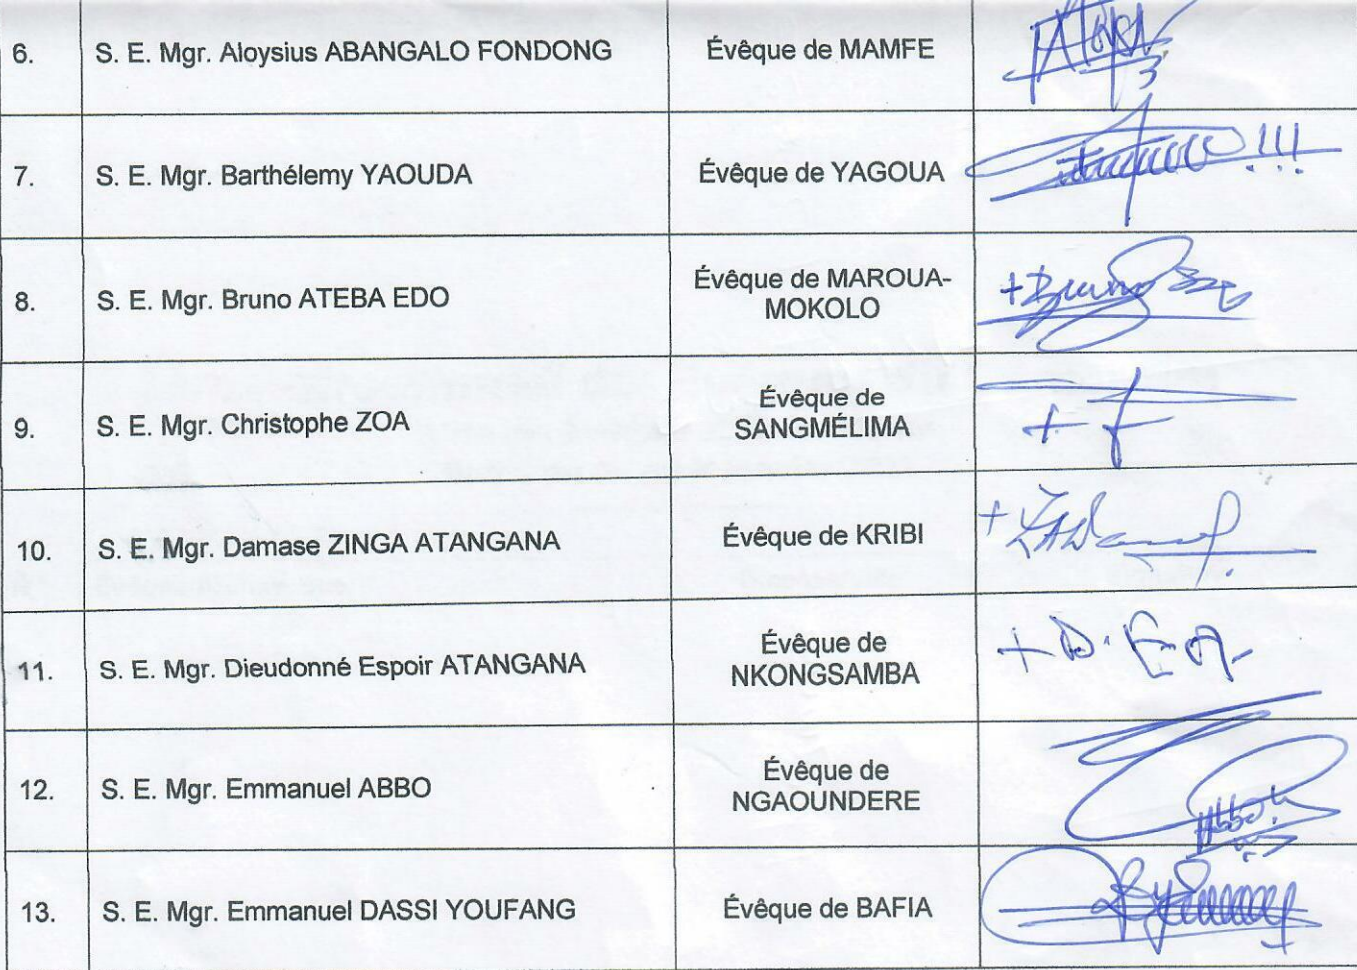 6. S. E. Mgr. Aloysius ABANGALO FONDONG Évêque de MAMFE
7. S. E. Mgr. Barthélemy YAOUDA Évêque de YAGOUA
8. S. E. Mgr. Bruno ATEBA EDO Évêque de MAROUA-
MOKOLO
9. S. E. Mgr. Christophe ZOA Évêque de
SANGMÉLIMA
10. S. E. Mgr. Damase ZINGA ATANGANA Évêque de KRIBI
11. S. E. Mgr. Dieudonné Espoir ATANGANA Évêque de
NKONGSAMBA
+ D. E. A.
12. S. E. Mgr. Emmanuel ABBO Évêque de
NGAOUNDERE
13. S. E. Mgr. Emmanuel DASSI YOUFANG Évêque de BAFIA